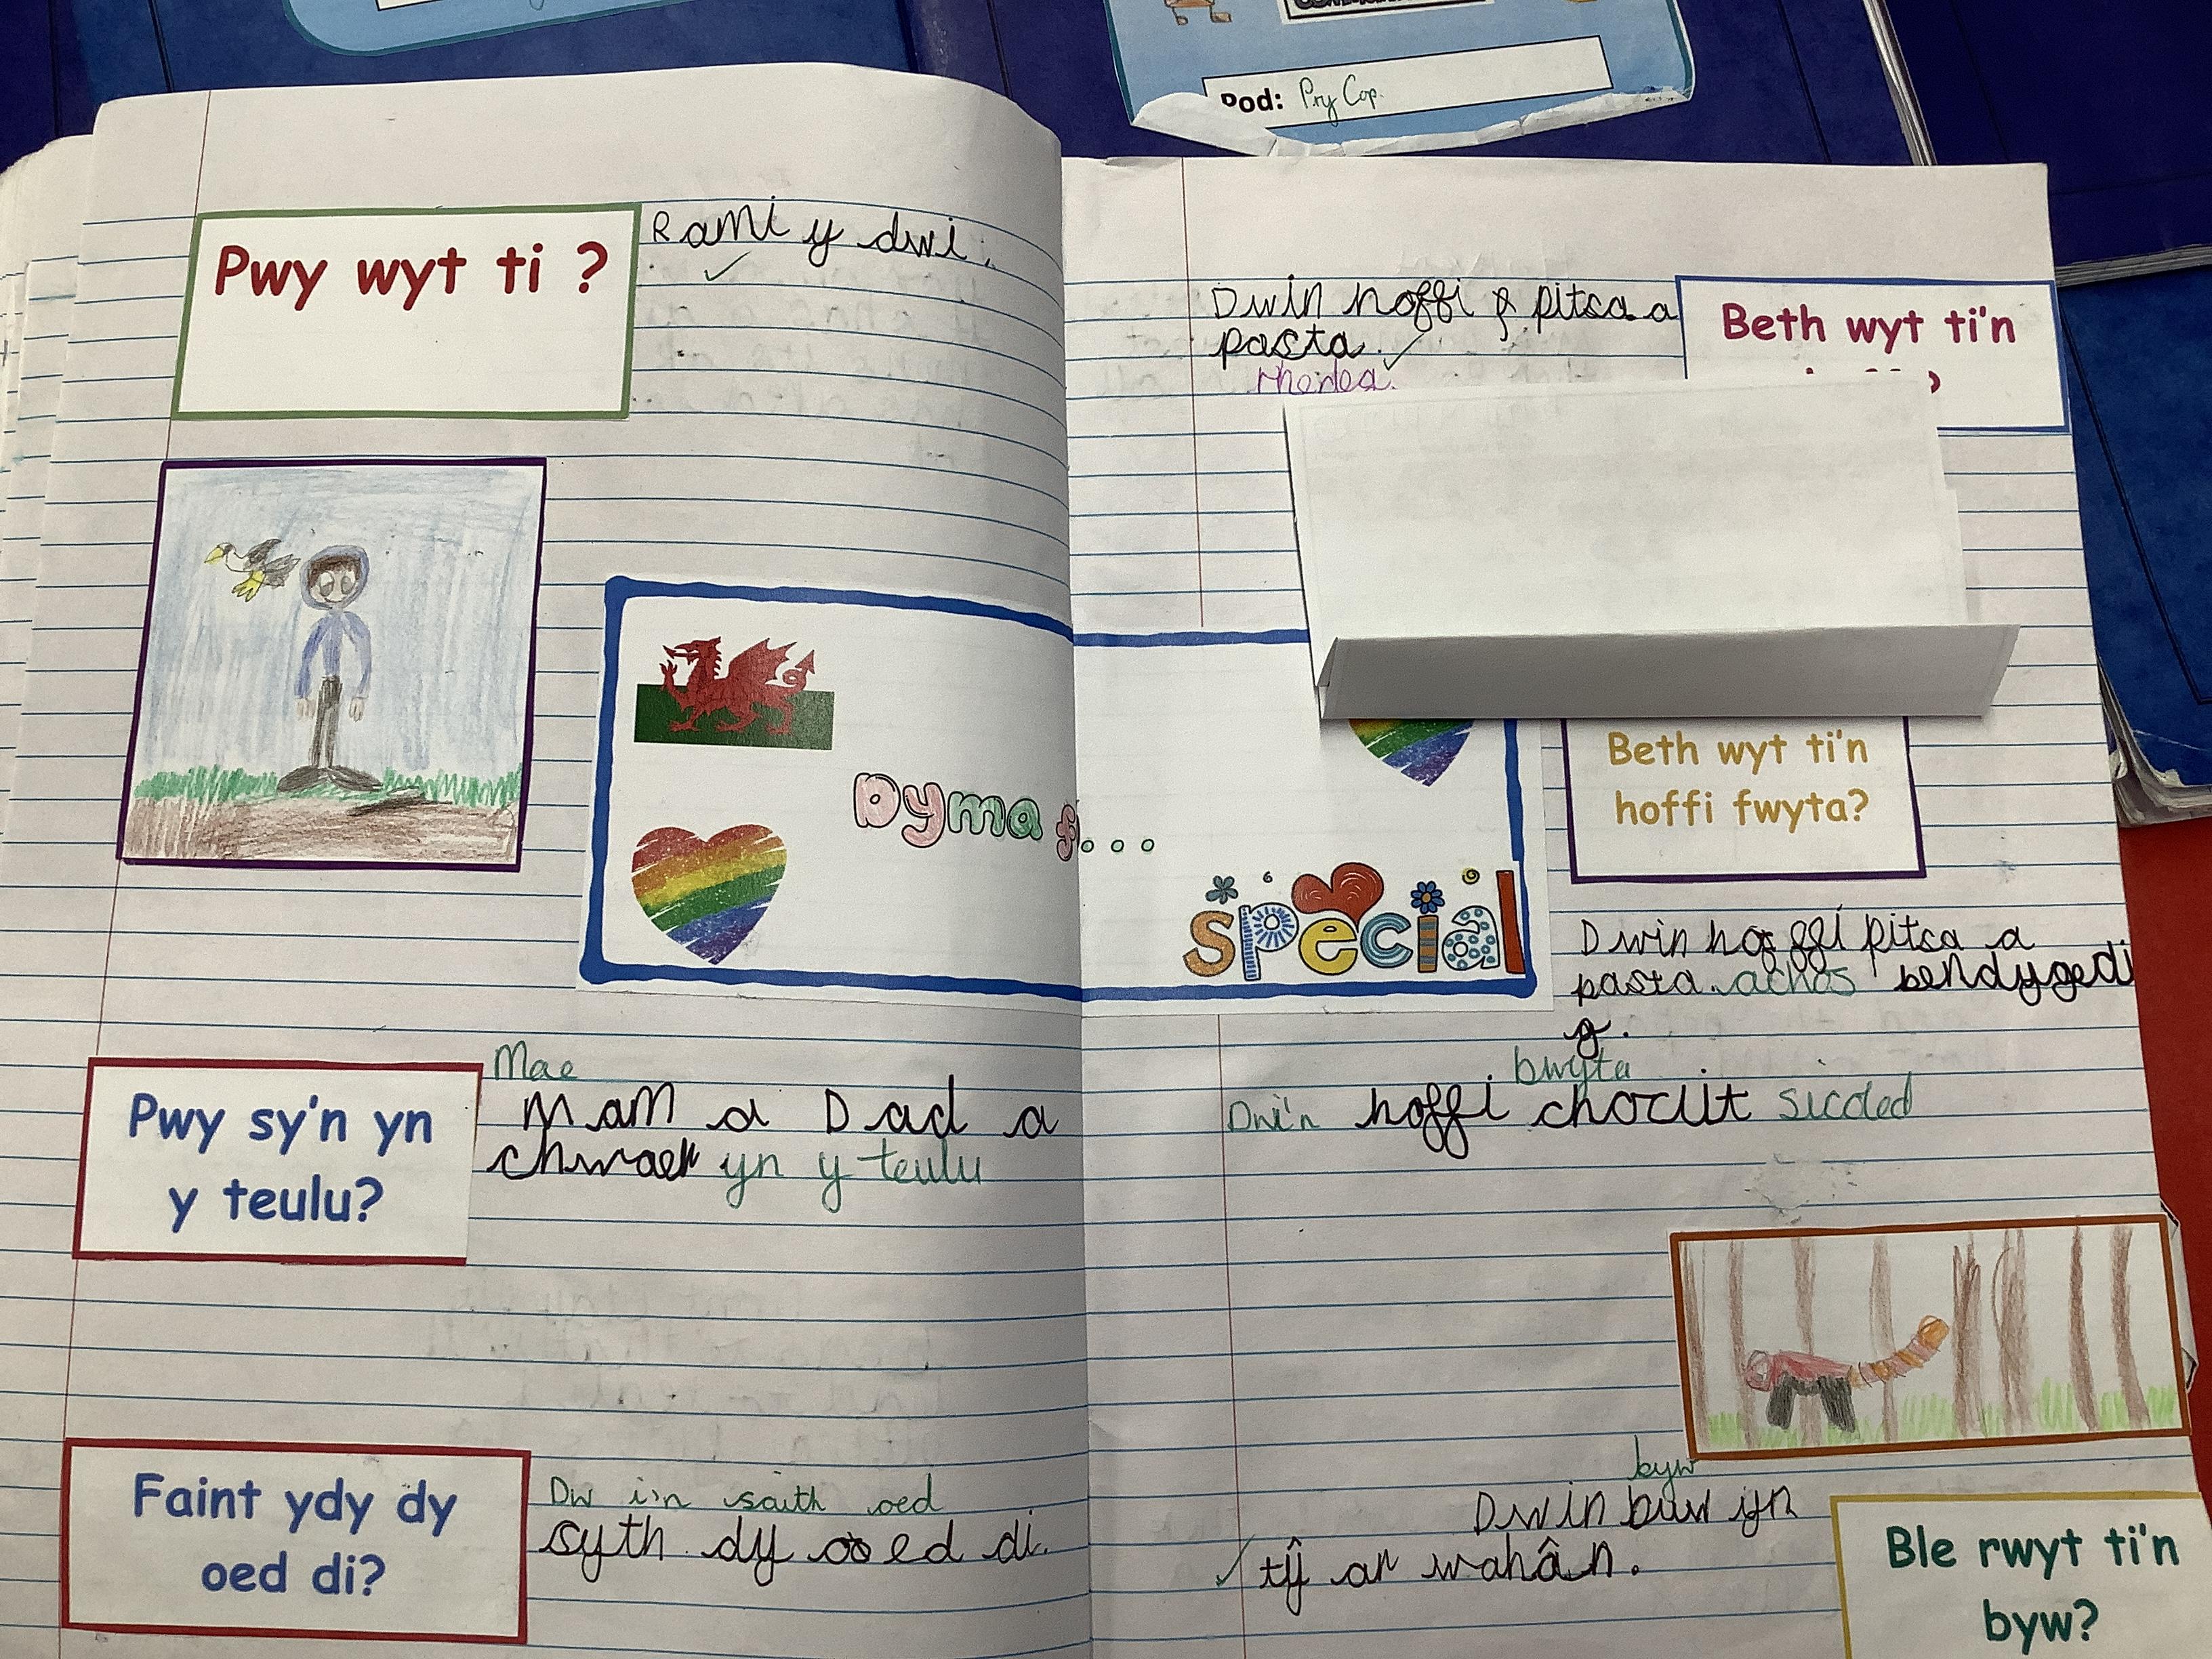 Pod: Pry Cop.
Pwy wyt ti ?
Rami y dwi.
Dyma fi...
special
Mae
Pwy sy'n yn
y teulu?
Mam a Dad a
chwaer yn y teulu
Faint ydy dy
oed di?
Dw i'n saith oed
syth dy oed di.
Dwin hoffi pitsa a
pasta.
Beth wyt ti'n
Beth wyt ti'n
hoffi fwyta?
Dwin hoffi pitsa a
pasta. achos bendygedi
g.
bwyta
Dwi'n hoffi choclit sicoled
byw
Dwin buw yn
tŷ ar wahân.
Ble rwyt ti'n
byw?